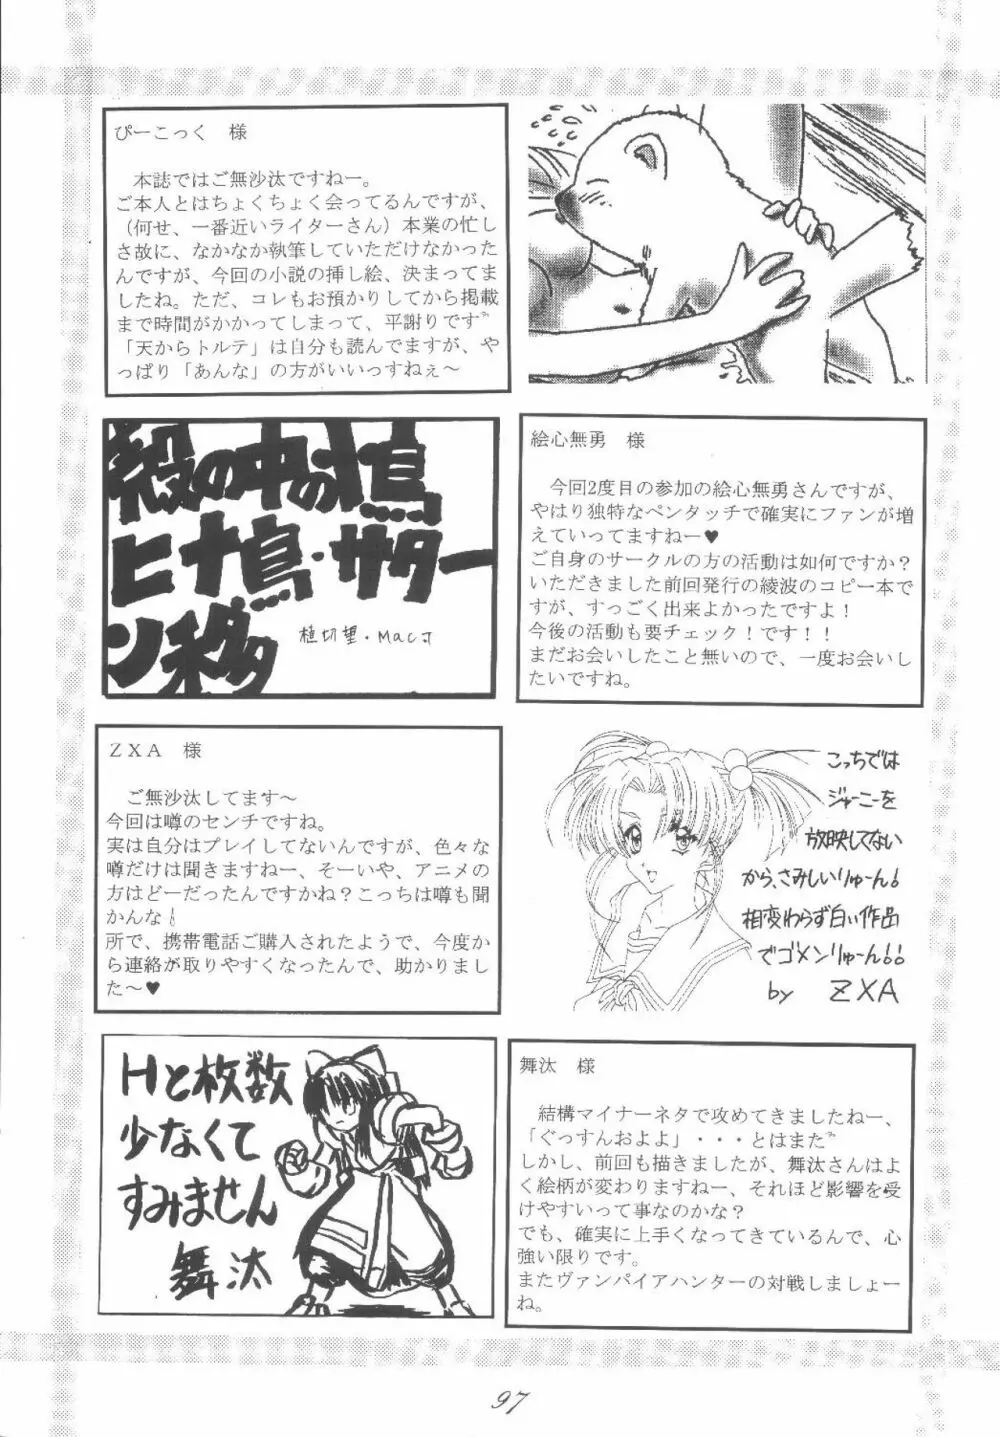 ぴーこっく　様
　本誌ではご無沙汰ですねー。
ご本人とはちょくちょく会ってるんですが、
（何せ、一番近いライターさん）本業の忙し
さ故に、なかなか執筆していただけなかった
んですが、今回の小説の挿し絵、決まってま
したね。ただ、コレもお預かりしてから掲載
まで時間がかかってしまって、平謝りです
「天からトルテ」は自分も読んでますが、や
っぱり「あんな」の方がいいっすねぇ～
殻の中の
ヒナ鳥・サター
ン移
植切望・Mac才
絵心無勇　様
　今回2度目の参加の絵心無勇さんですが、
やはり独特なペンタッチで確実にファンが増
えていってますねー♥
ご自身のサークルの方の活動は如何ですか？
いただきました前回発行の綾波のコピー本で
すが、すっごく出来よかったですよ！
今後の活動も要チェック！です！！
まだお会いしたこと無いので、一度お会いし
たいですね。
ZXA　様
　ご無沙汰してます～
今回は噂のセンチですね。
実は自分はプレイしてないんですが、色々な
噂だけは聞きますねー、そーいや、アニメの
方はどーだったんですかね？こっちは噂も聞
かんな
所で、携帯電話ご購入されたようで、今度か
ら連絡が取りやすくなったんで、助かりまし
た～♥
こっちでは
ジャーニーを
放映してない
から、さみしいりゅーん！
相変わらず白い作品
でゴメンりゅーん！！
by ZXA
Hと枚数
少なくて
すみません
舞汰
舞汰　様
　結構マイナーネタで攻めてきましたねー、
「ぐっすんおよよ」・・・とはまた
しかし、前回も描きましたが、舞汰さんはよ
く絵柄が変わりますねー、それほど影響を受
けやすいって事なのかな？
でも、確実に上手くなってきているんで、心
強い限りです。
またヴァンパイアハンターの対戦しましょー
ね。
97